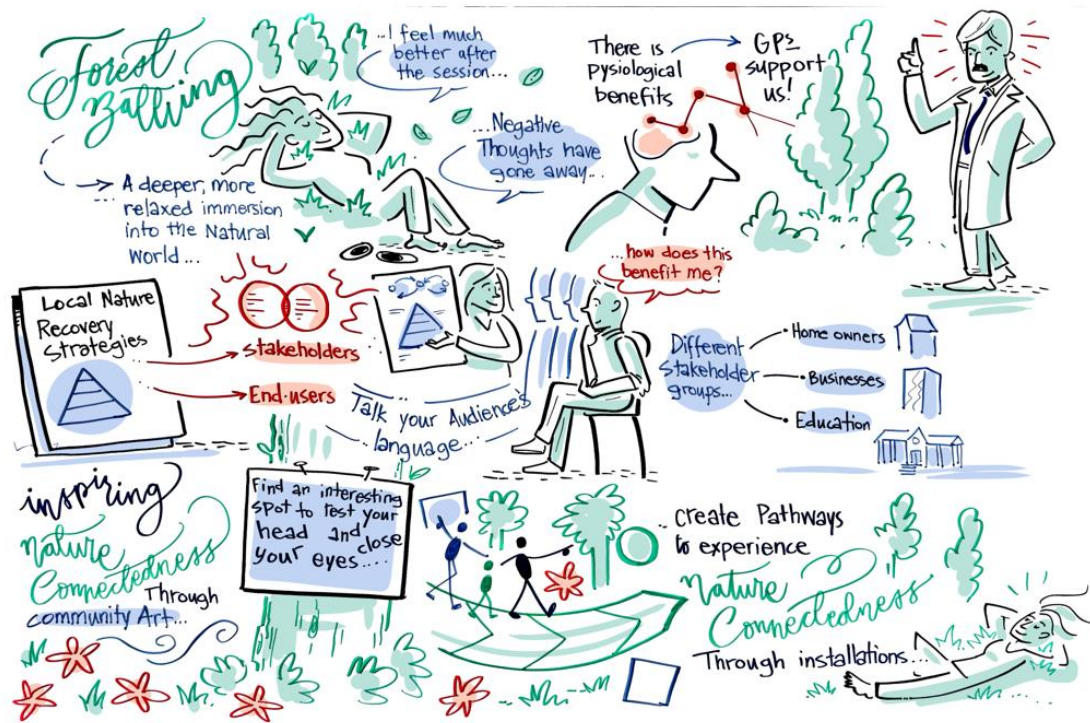 Forest
Bathing
...I feel much
better after
the session...
...Negative
Thoughts have
gone away...
A deeper, more
relaxed immersion
into the Natural
world...
There is
pysiological
benefits
GPs
support
us!
Local Nature
Recovery
Strategies
Stakeholders
End-users
Talk your Audiences
language...
...how does this
benefit me?
Different
stakeholder
groups...
Home owners
Businesses
Education
inspiring
Nature
Connectedness
Through
community Art...
Find an interesting
spot to rest your
head and close
your eyes....
..create Pathways
to experience
Nature
Connectedness
Through installations...